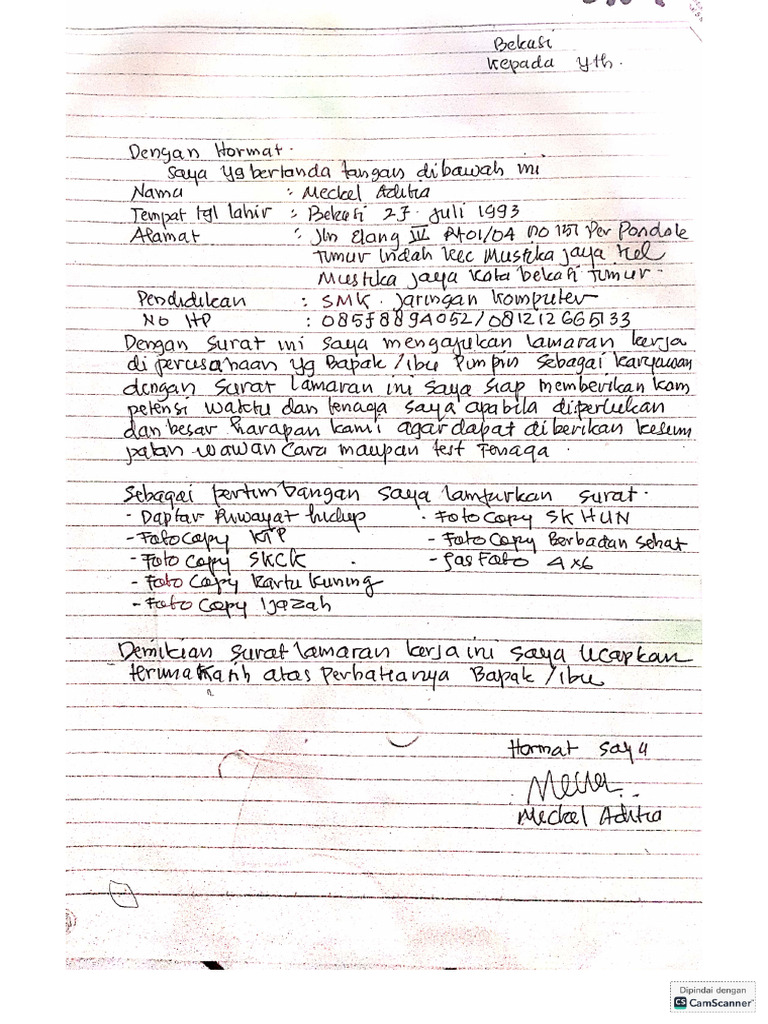 Bekasi
Kepada Yth.
Dengan Hormat.
Saya yg bertanda tangan dibawah ini
Nama : Meckel Aditia
Tempat tgl lahir : Bekasi 27 Juli 1993
Alamat : Jln Elang IV Rt01/04 no 151 Per Pondok
Timur Indah Kec Mustika Jaya Kel
Mustika Jaya Kota bekasi Timur.
Pendidikan : SMK. Jaringan Komputer
No HP : 085788894052/081212665133
Dengan Surat ini saya mengajukan lamaran kerja
di perusahaan yg Bapak/Ibu Pimpin sebagai Karyawan
dengan Surat Lamaran ini saya siap memberikan kom
petensi waktu dan tenaga saya apabila diperlukan
dan besar harapan kami agar dapat diberikan kesem
patan wawancara maupan test Tenaga.
Sebagai pertimbangan saya lampirkan surat.
- Daptar Riwayat hidup
- Foto Copy SKHUN
- Foto Copy KTP
- Foto Copy Berbadan Sehat
- Foto Copy SKCK
- Pas Foto 4x6
- Foto Copy Kartu Kuning
- Foto Copy Ijazah
Demikian Surat lamaran kerja ini saya Ucapkan
terima kasih atas Perhatianya Bapak/ibu
Hormat Saya
Meckel Aditia
Dipindai dengan
CS CamScanner